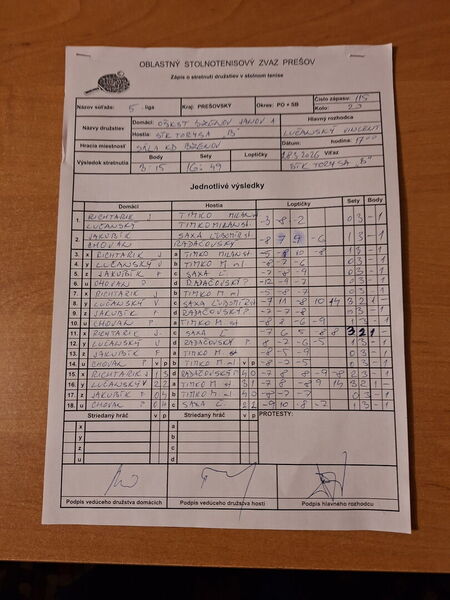 OBLASTNÝ STOLNOTENISOVÝ ZVÄZ PREŠOV
Zápis o stretnutí družstiev v stolnom tenise
Názov súťaže: 5. liga Kraj: PREŠOVSKÝ Okres: PO + SB Číslo zápasu: 115
Kolo: 20
Názvy družstiev Domáci: OŠKST BZENOV JANOV A Hlavný rozhodca
Hostia: STK TORYSA "B" LUČANSKÝ VINCENT
Hracia miestnosť SÁLA KD BZENOV Dátum: hodina: 17:00
Výsledok stretnutia Body Sety Loptičky 18.3.2026 Víťaz
3:15 16:49 STK TORYSA "B"
Jednotlivé výsledky
Domáci Hostia Loptičky Sety Body
1. RICHTARIK J TIMKO MILAN -3 -8 -2 0 3 - 1
LUČANSKÝ TIMKO MILAN ST.
2. JAKUBÍK SAXA ĽUBOMÍR -8 7 -6 1 3 - 1
CHOVAN RADAČOVSKÝ
3. x RICHTARIK J a TIMKO MILAN 10 -8 1 3 - 1
4. y LUČANSKÝ V b TIMKO M ml -8 -2 -6 0 3 - 1
5. z JAKUBÍK F c SAXA Ľ -7 -8 -9 0 3 - 1
6. u CHOVAN P d RADAČOVSKÝ -12 -9 -7 0 3 - 1
7. x RICHTARIK b TIMKO M ml -5 -8 -7 0 3 - 1
8. y LUČANSKÝ V c SAXA ĽUBOMÍR -7 11 -8 10 14 3 2 1 -
9. z JAKUBÍK F d RADAČOVSKÝ -7 -7 -8 0 3 - 1
10. u CHOVAN P a TIMKO M st 0 3 - 1
11. x RICHTARIK J c SAXA Ľ -7 6 5 8 8 3 2 1 -
12. y LUČANSKÝ V d RADAČOVSKÝ 1 3 - 1
13. z JAKUBÍK F a TIMKO M st -8 -5 -9 0 3 - 1
14. u CHOVAN P v p b TIMKO M ml v p -8 -2 -5 0 3 - 1
15. x RICHTARIK J 1 3 d RADAČOVSKÝ 4 0 -7 8 8 -9 -8 2 3 - 1
16. y LUČANSKÝ V 2 2 a TIMKO M st 3 1 -7 8 -8 9 14 3 2 1 -
17. z JAKUBÍK F 0 4 b TIMKO M ml 4 0 -8 -7 -7 0 3 - 1
18. u CHOVAN P 0 4 c SAXA Ľ 2 2 -9 10 -8 -7 1 3 - 1
Striedaný hráč v p Striedaný hráč v p PROTESTY:
x a
y b
z c
u d
Podpis vedúceho družstva domácich Podpis vedúceho družstva hostí Podpis hlavného rozhodcu